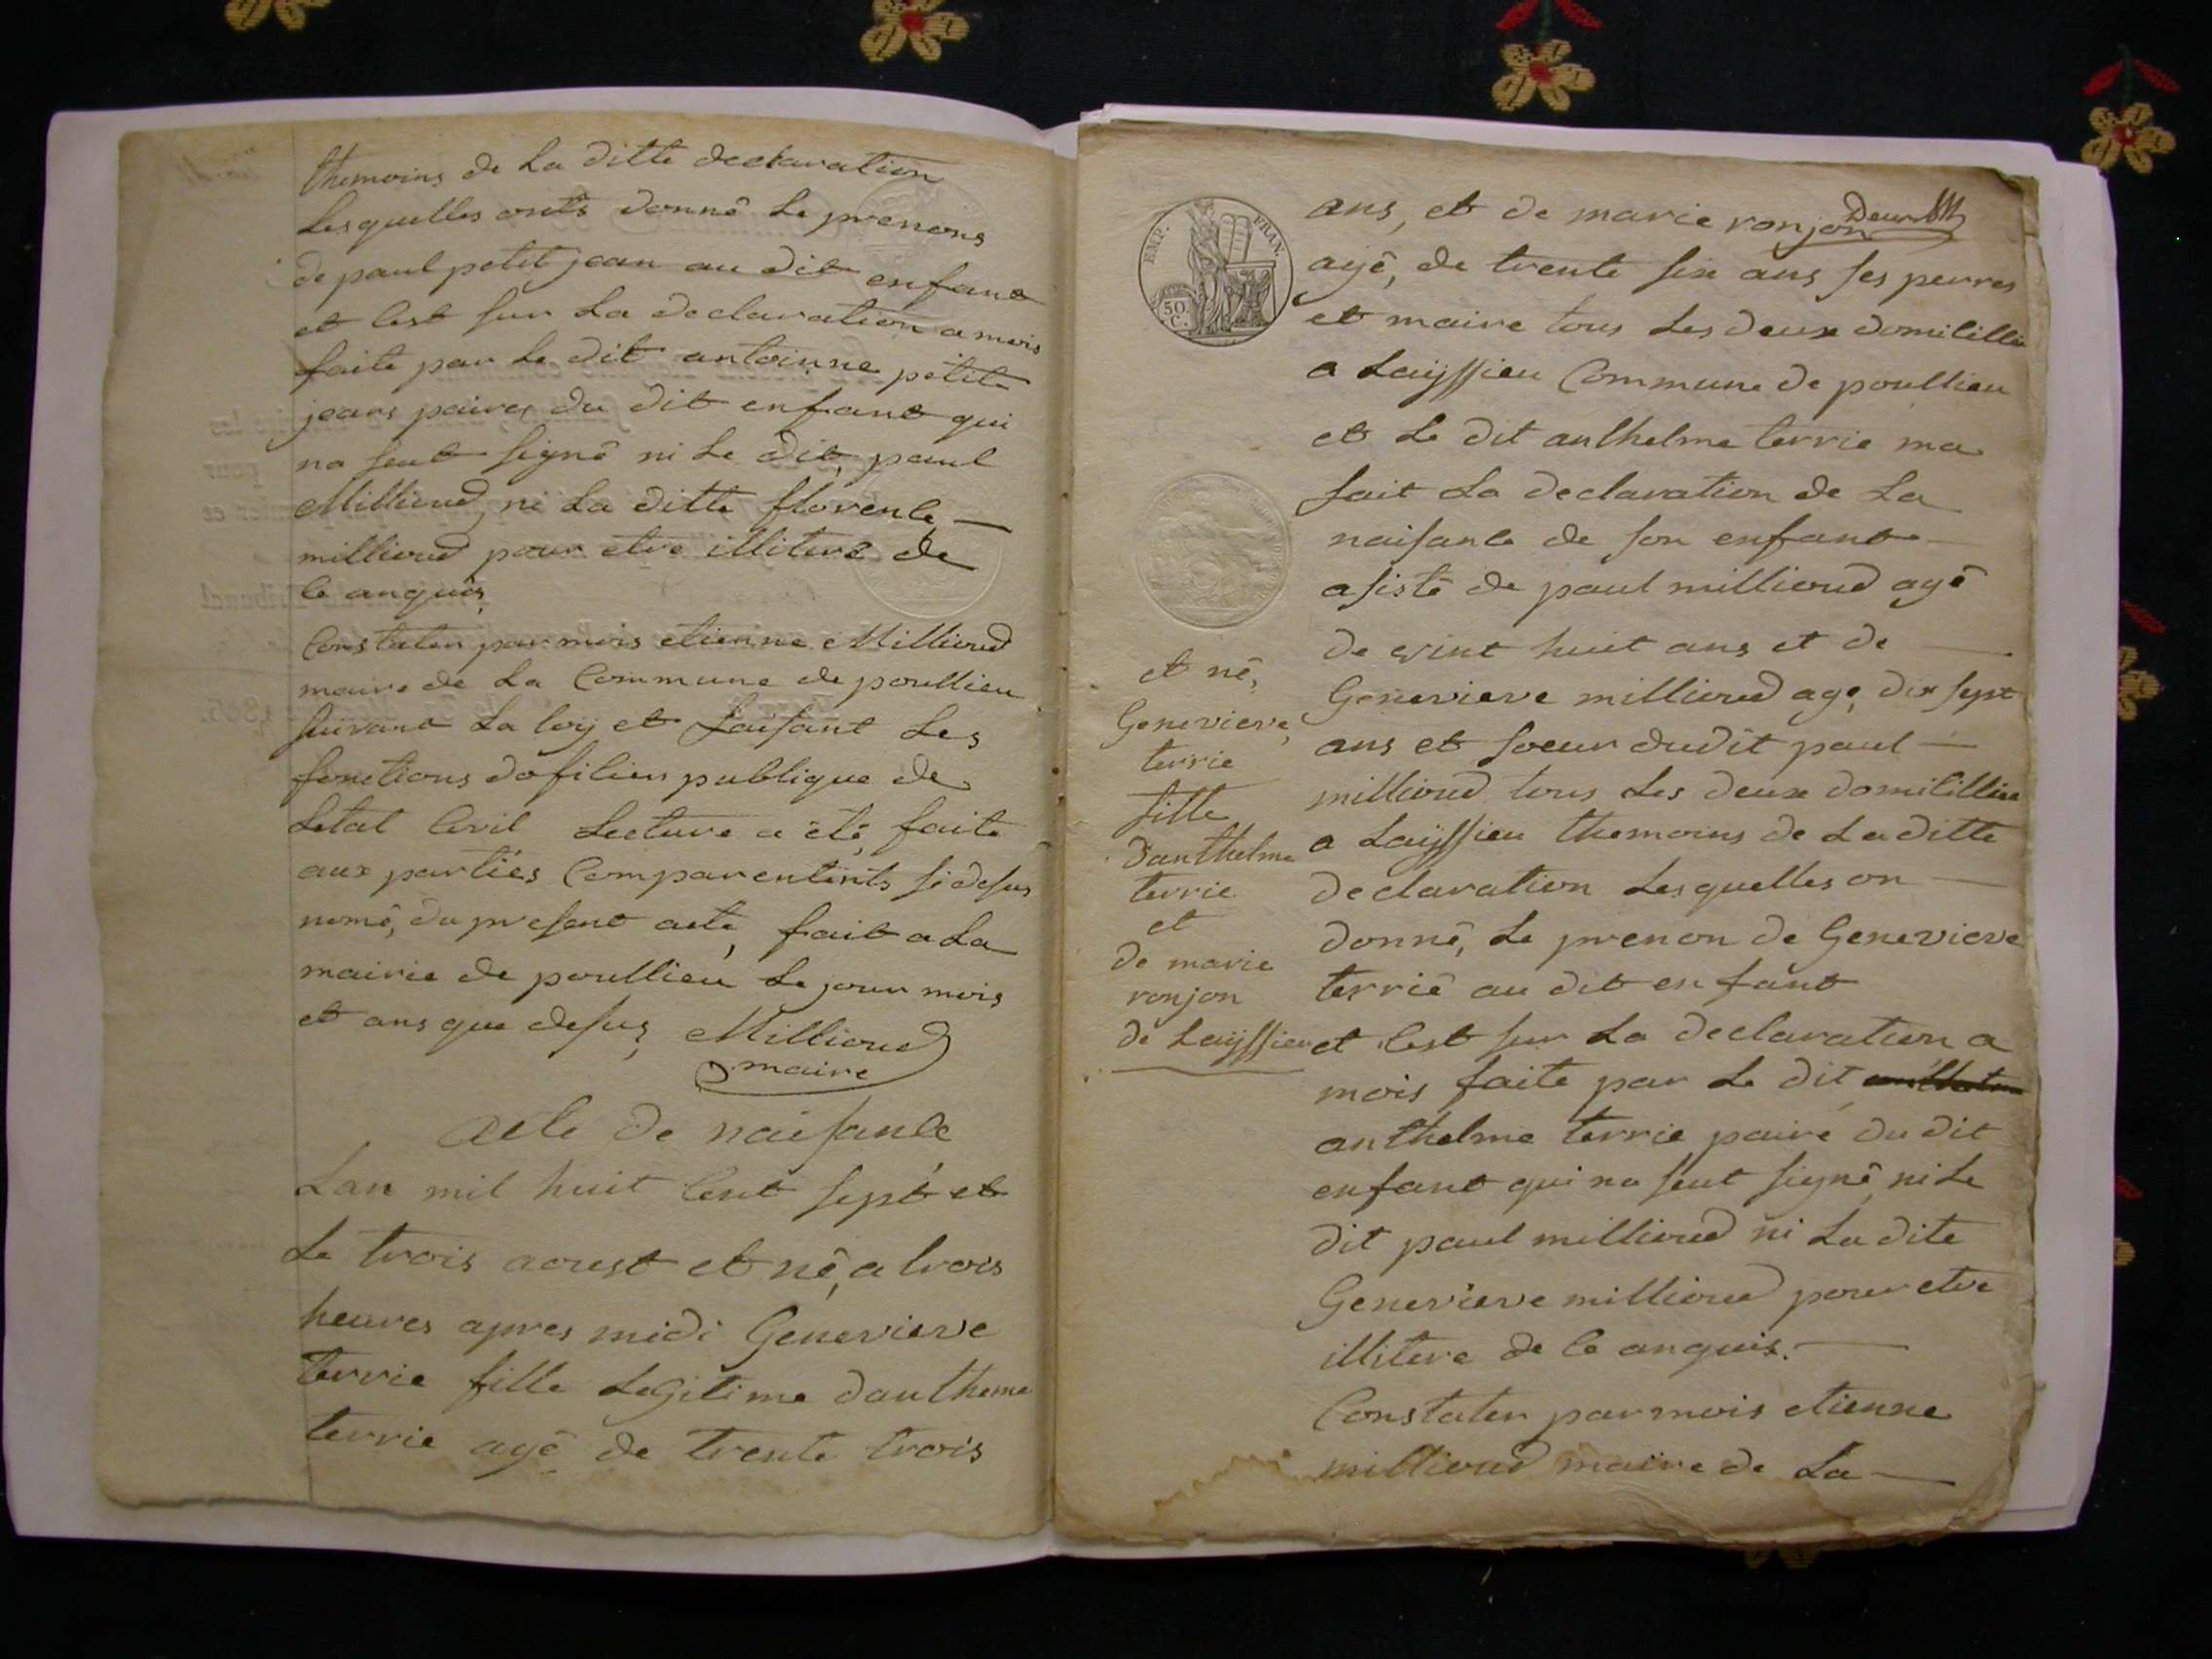 themoins de La ditte declaration
Lesquelles onts donné Le prenons
de paul petit jean au dit enfant
et Cest sur La declaration a mois
faite par Le dit antoinne petite
jeans paires du dit enfant qui
na seut signé ni Le dit paul
Millioud, ni La ditte florence —
millioud pour etre illiteré de
Ce anquis
Constater par mois etienne Millioud
maire de La Commune de poullieu
suivant La loy et faisant Les
fonctions dofilier publique de
Letat Civil Lecture a été, faite
aux parties Comparentents si desus
nomé, du present acte, fait a La
mairie de poullieu Le jour mois
et ans que desus, Millioud
maire
acte de naisance
Lan mil huit Cent sept et
Le trois aoust et né, a trois
heures apres midi Genevieve
terrie fille Legitime dantheme
terrie agé de trente trois
Deux
EMP. FRAN.
50 C.
ans, et de marie ronjon
agé, de trente six ans ses perres
et maire tous Les deux domicillie
a Laijssieu Commune de poullieu
et Le dit anthelme terrie ma
fait La declaration de La
naisance de son enfant —
asisté de paul millioud agé
de vint huit ans et de —
Genevieve millioud age, dix sept
ans et soeur dudit paul —
millioud tous Les deux domicillie
a Laijssieu themoins de La ditte
declaration Lesquelles on —
donné, Le prenon de Genevieve
terrié au dit enfant
et Cest sur La declaration a
mois faite par Le dit
anthelme terrie paire du dit
enfant qui na seut signé, ni Le
dit paul millioud ni La dite
Genevieve millioud pour etre
illitere de Ce anquis. —
Constater par mois etienne
millioud maire de La —
et né,
Genevieve,
terrie
fille
danthelme
terrie
et
de marie
ronjon
de Laijssieu